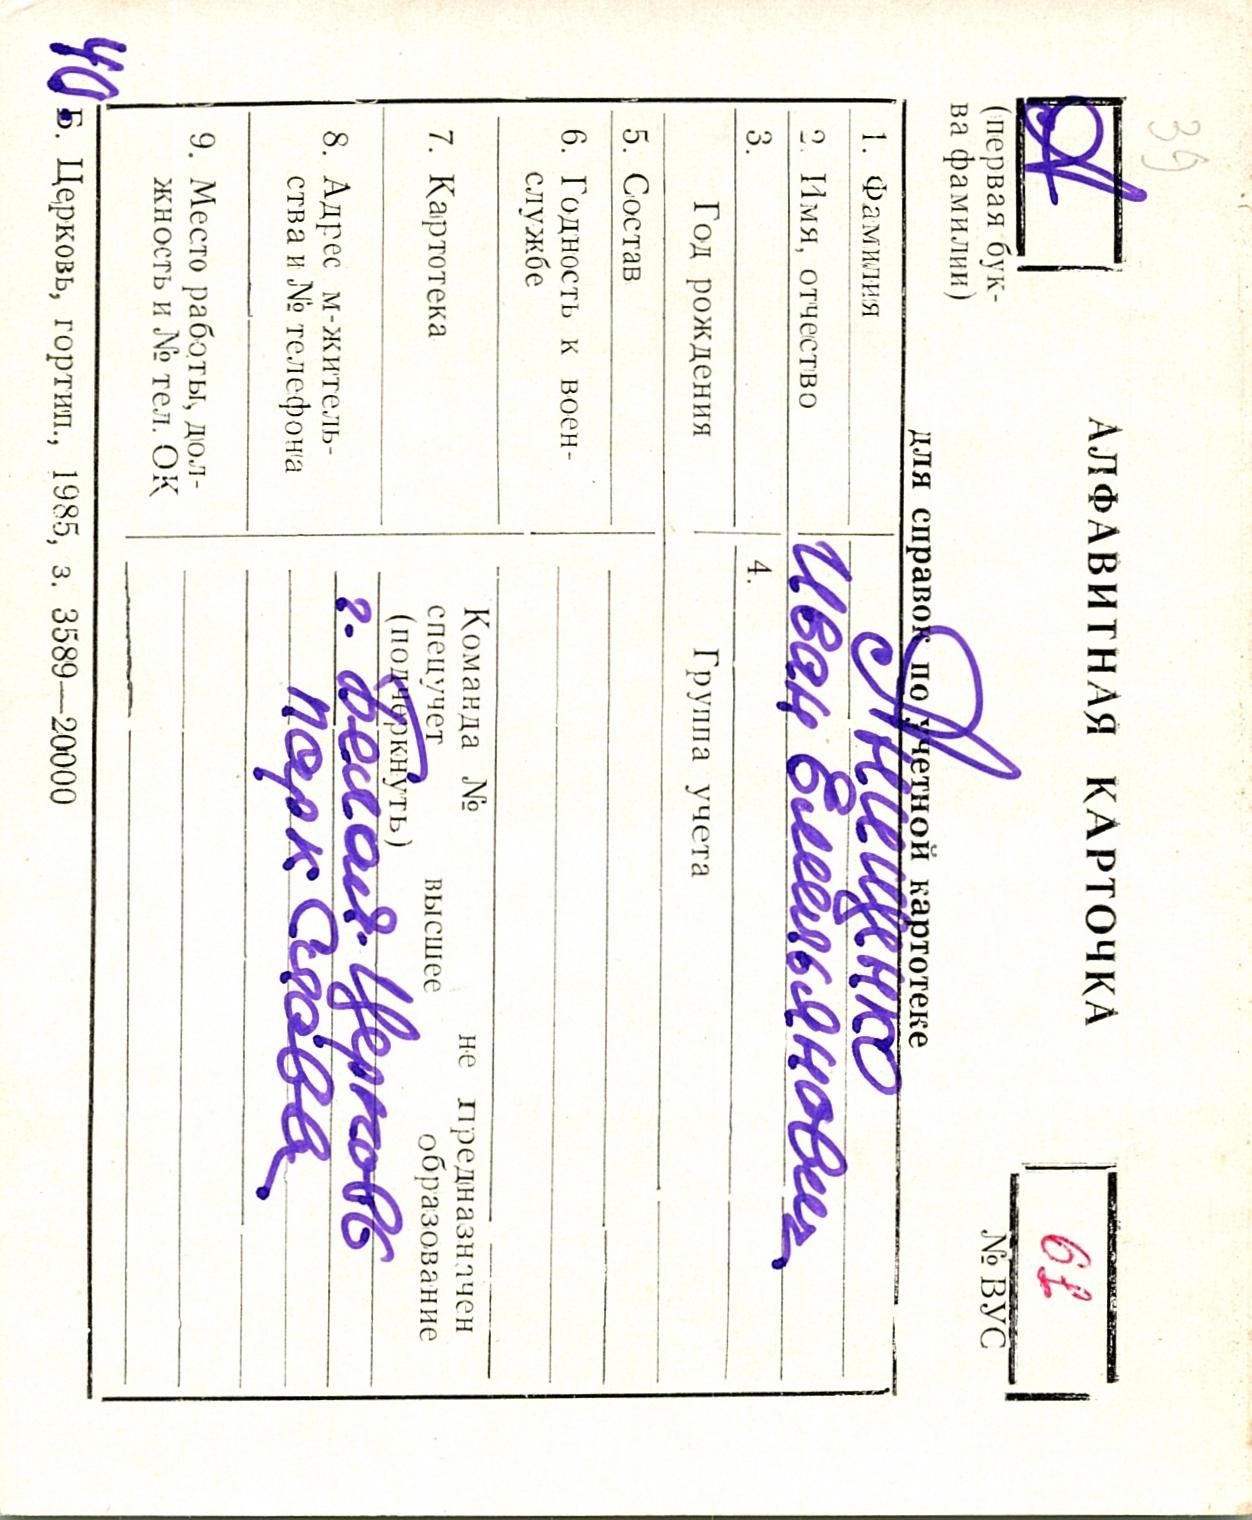 39
А
(первая бук-
ва фамилии)
АЛФАВИТНАЯ КАРТОЧКА
для справок по учетной картотеке
61
№ ВУС
1. Фамилия Анищенко
2. Имя, отчество Иван Емельянович
3. 4.
Год рождения Группа учета
5. Состав
6. Годность к воен-
службе
7. Картотека
Команда № не предназначен
спецучет высшее образование
(подчеркнуть)
8. Адрес м-житель-
ства и № телефона
г. Белая Церковь
парк Слава
9. Место работы, дол-
жность и № тел. ОК
40
Б. Церковь, гортип., 1985, з. 3589—20000